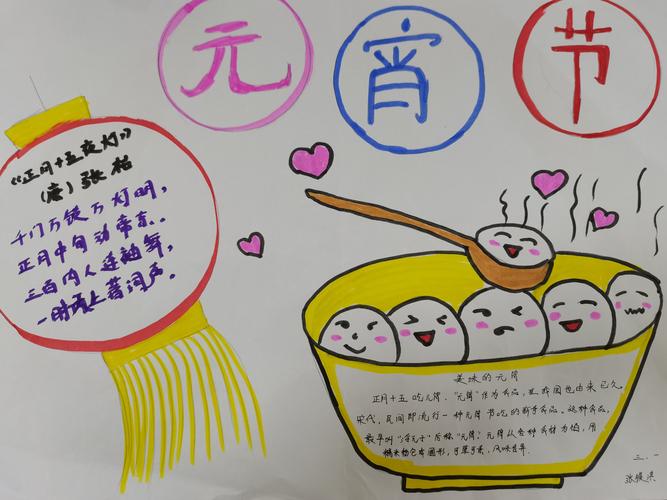 元宵节
《正月十五夜灯》
(唐) 张祜
千门万锁万灯明，
正月中旬动帝京.
三百内人连袖舞，
一时上著词声.
美味的元宵
正月十五吃元宵，"元宵"作为食品，在我国也由来已久，
宋代，民间即流行一种元宵节吃的新奇食品。这种食品，
最早叫"浮元子"后称"元宵"元宵从各种食材为馅，用
糯米粉包圆形，可荤可素，风味各异.
三.一
张